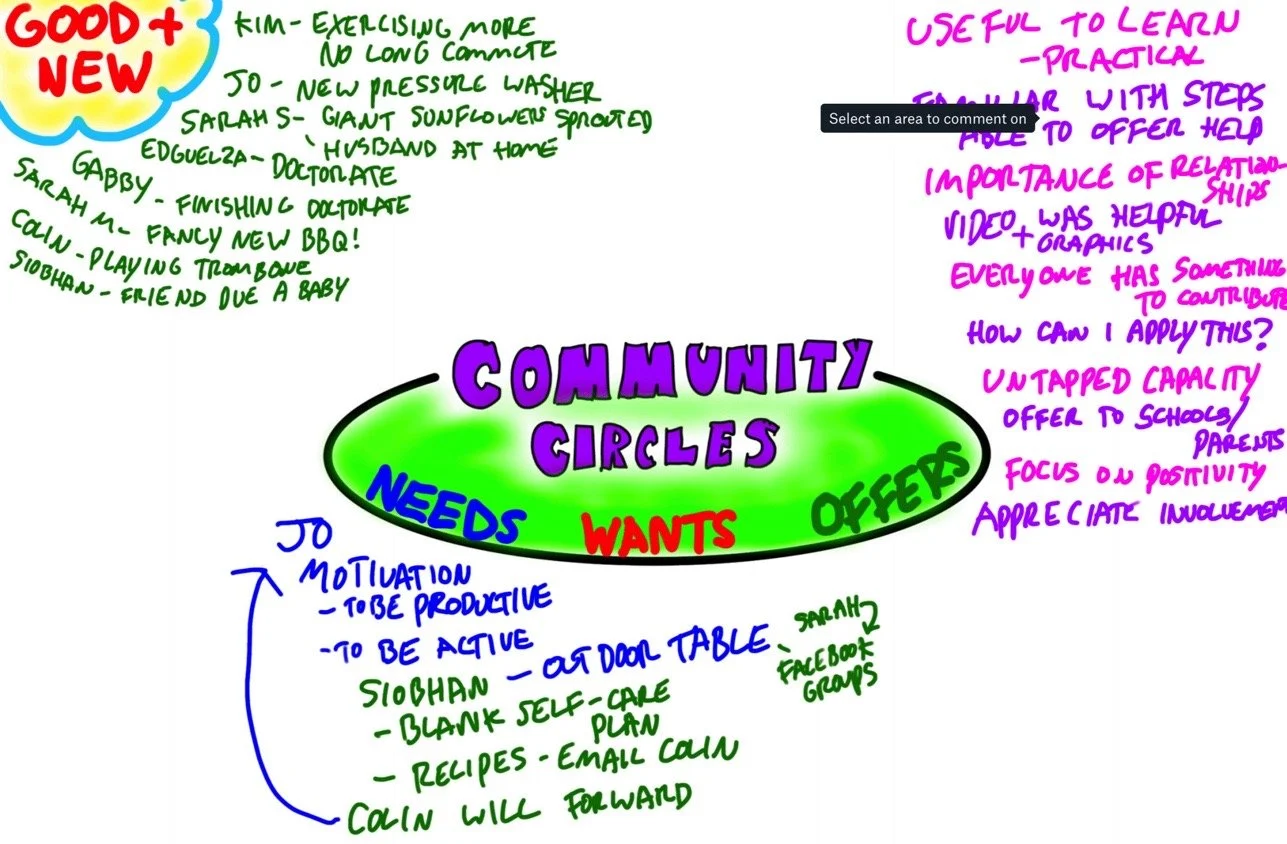 GOOD +
NEW
KIM - EXERCISING MORE
NO LONG COMMUTE
JO - NEW PRESSURE WASHER
SARAH S - GIANT SUNFLOWERS SPROUTED
HUSBAND AT HOME
EDGUELZA - DOCTORATE
GABBY - FINISHING DOCTORATE
SARAH M - FANCY NEW BBQ!
COLIN - PLAYING TROMBONE
SIOBHAN - FRIEND DUE A BABY
COMMUNITY
CIRCLES
NEEDS
WANTS
OFFERS
JO
MOTIVATION
- TO BE PRODUCTIVE
- TO BE ACTIVE
- OUTDOOR TABLE
SARAH
- FACEBOOK
GROUPS
SIOBHAN
- BLANK SELF-CARE
PLAN
- RECIPES - EMAIL COLIN
COLIN WILL FORWARD
USEFUL TO LEARN
- PRACTICAL
FAMILIAR WITH STEPS
Select an area to comment on
ABLE TO OFFER HELP
IMPORTANCE OF RELATION
SHIPS
VIDEO WAS HELPFUL
+ GRAPHICS
EVERYONE HAS SOMETHING
TO CONTRIBUTE
HOW CAN I APPLY THIS?
UNTAPPED CAPACITY
OFFER TO SCHOOLS/
PARENTS
FOCUS ON POSITIVITY
APPRECIATE INVOLVEMEN